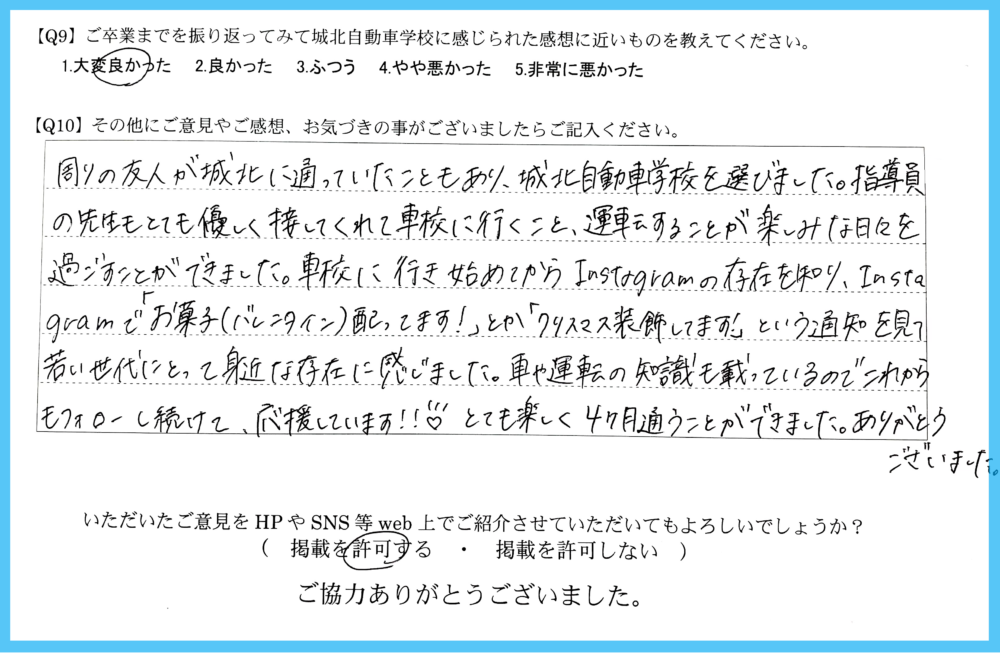 【Q9】ご卒業までを振り返ってみて城北自動車学校に感じられた感想に近いものを教えてください。
1.大変良かった 2.良かった 3.ふつう 4.やや悪かった 5.非常に悪かった
【Q10】その他にご意見やご感想、お気づきの事がございましたらご記入ください。
周りの友人が城北に通っていたこともあり、城北自動車学校を選びました。指導員
の先生もとても優しく接してくれて車校に行くこと、運転することが楽しみな日々を
過ごすことができました。車校に行き始めてからInstagramの存在を知り、Insta
gramで「お菓子(バレンタイン)配ってます!」とか「クリスマス装飾してます!」という通知を見て
若い世代にとって身近な存在に感じました。車や運転の知識も載っているのでこれから
もフォローし続けて、応援しています!!♡ とても楽しく4ヶ月通うことができました。ありがとう
ございました。
いただいたご意見をHPやSNS等web上でご紹介させていただいてもよろしいでしょうか?
( 掲載を許可する ・ 掲載を許可しない )
ご協力ありがとうございました。